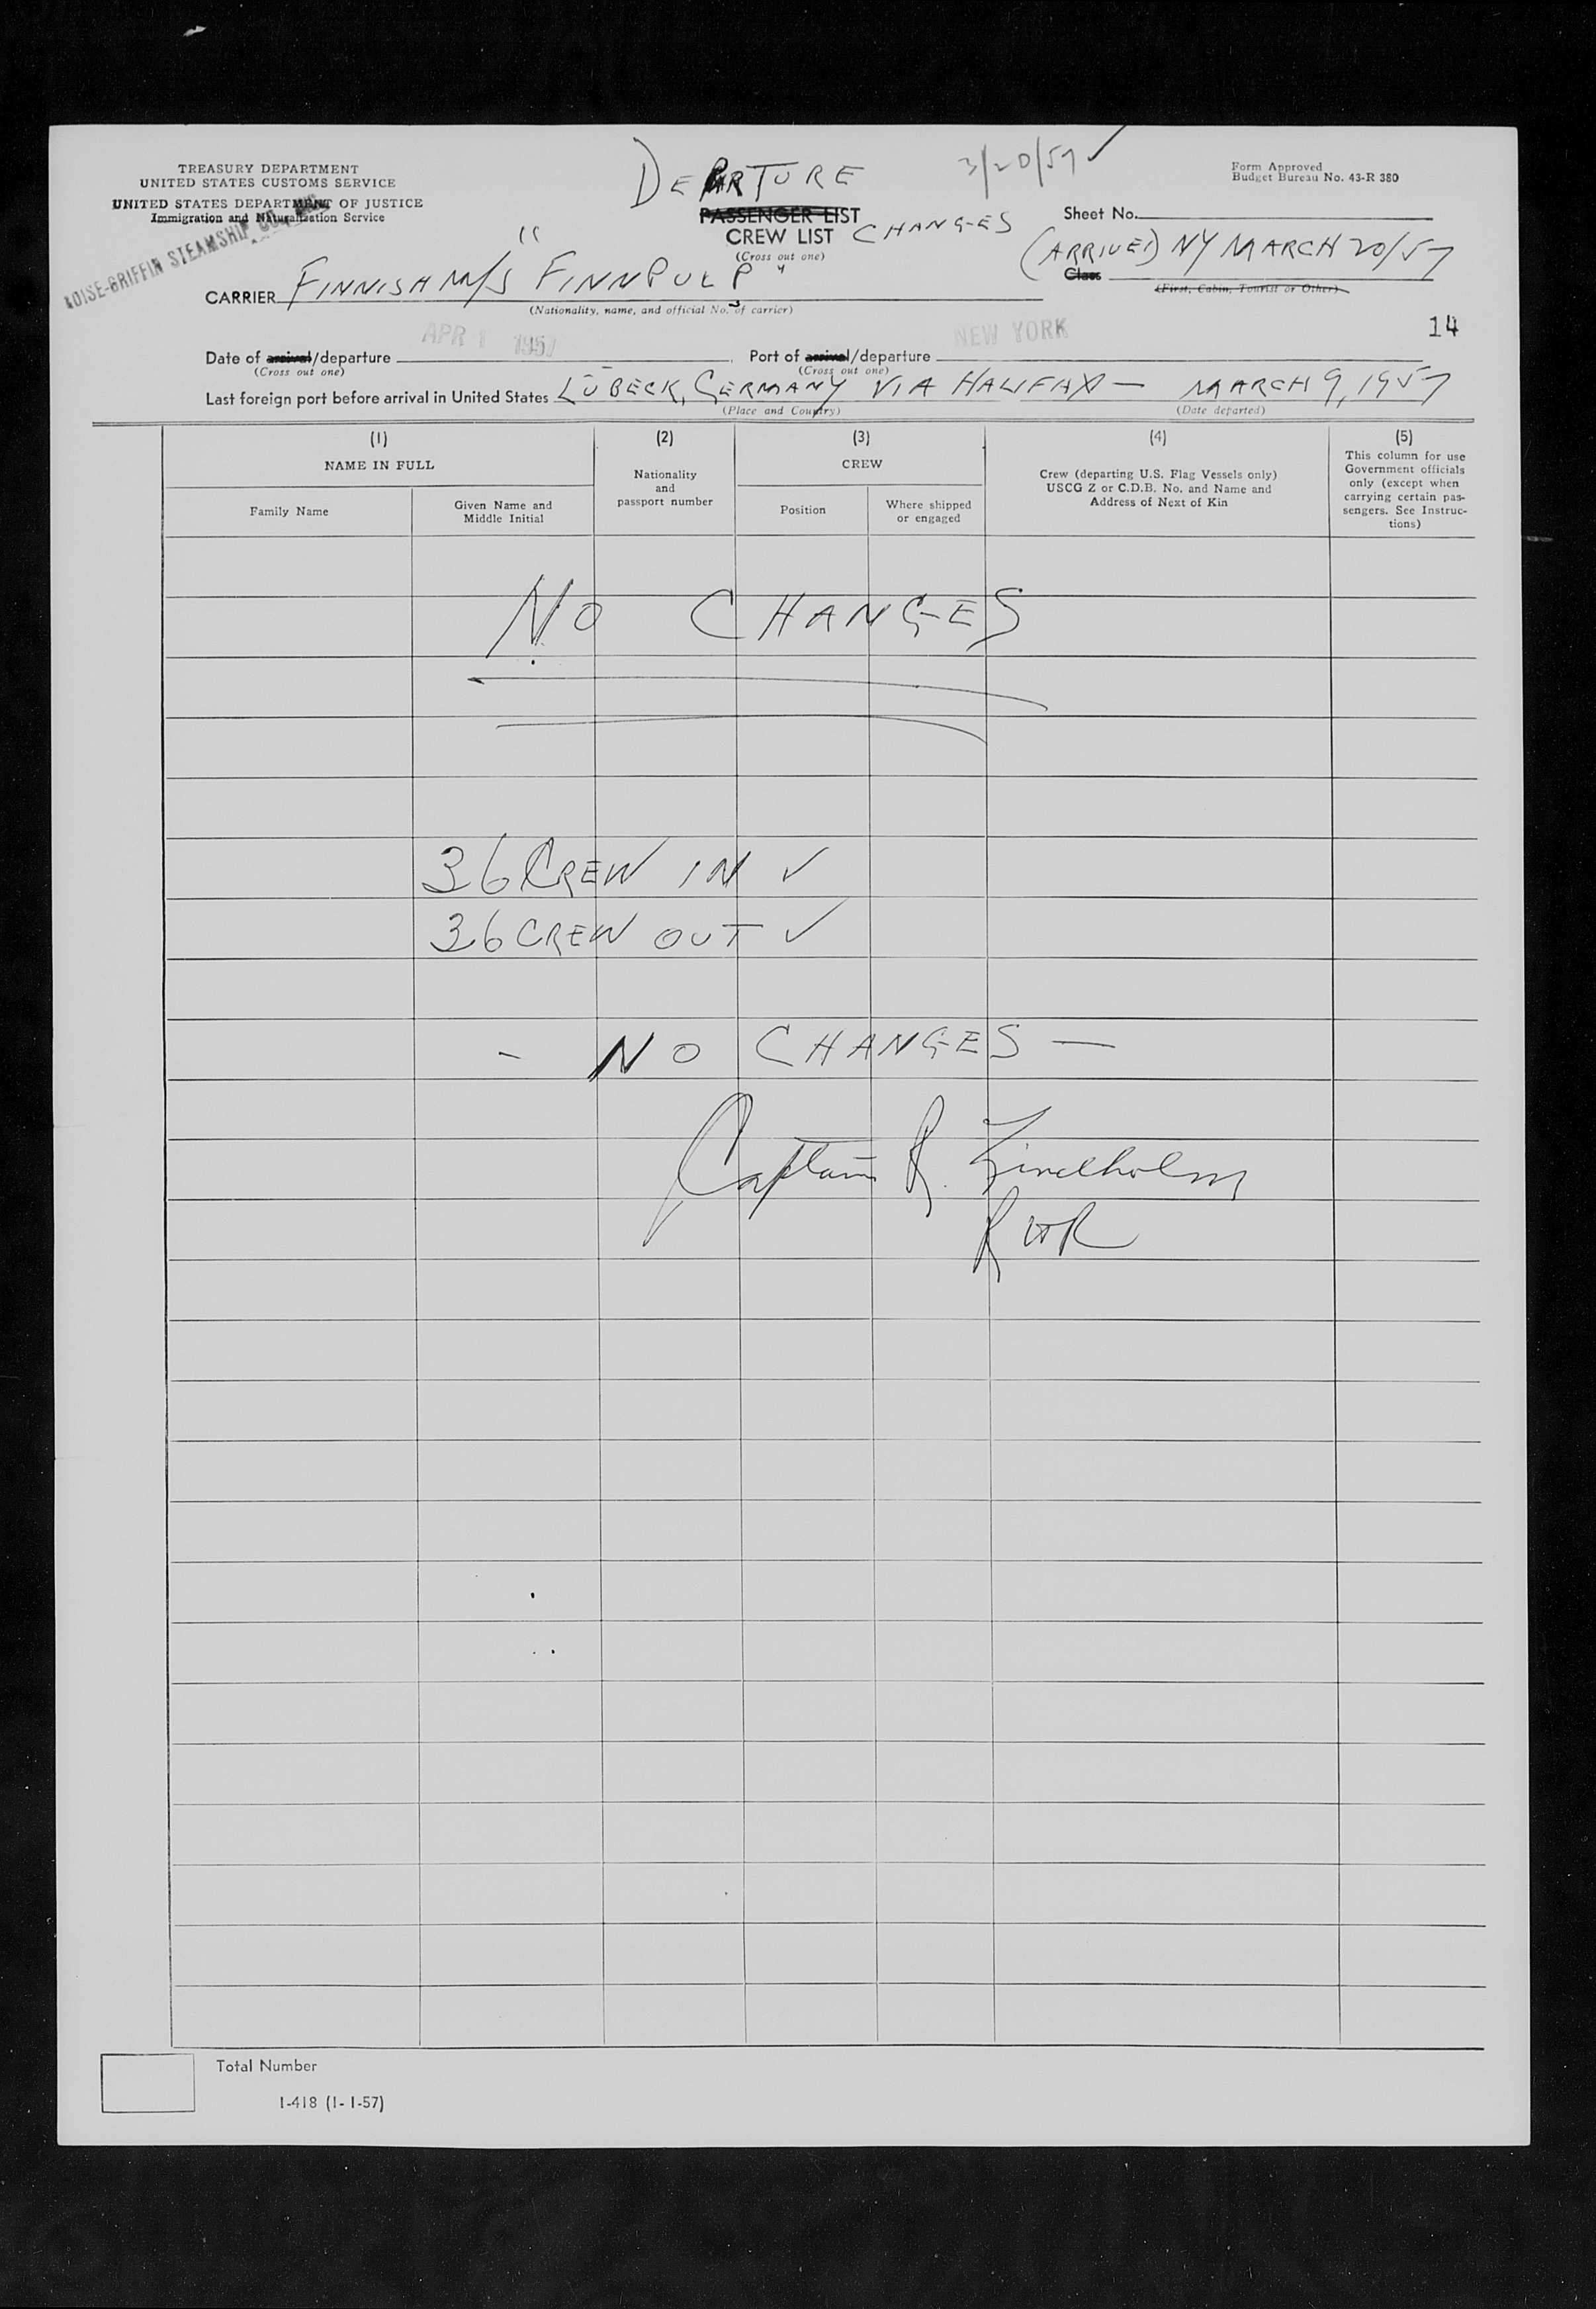 DEPARTURE 3/20/57 ✓
TREASURY DEPARTMENT
UNITED STATES CUSTOMS SERVICE
UNITED STATES DEPARTMENT OF JUSTICE
Immigration and Naturalization Service
Form Approved
Budget Bureau No. 43-R 380
PASSENGER LIST
CREW LIST CHANGES
(Cross out one)
Sheet No.
-GRIFFIN STEAMSHIP CO.
(ARRIVED) NY MARCH 20/57
Class
(First, Cabin, Tourist or Other)
CARRIER FINNISH M/S "FINNPULP"
(Nationality, name, and official No. of carrier)
14
APR 1 1957 NEW YORK
Date of arrival/departure Port of arrival/departure
(Cross out one) (Cross out one)
Last foreign port before arrival in United States LÜBECK, GERMANY VIA HALIFAX — MARCH 9, 1957
(Place and Country) (Date departed)
(1) (2) (3) (4) (5)
NAME IN FULL
Family Name
Given Name and
Middle Initial
Nationality
and
passport number
CREW
Position
Where shipped
or engaged
Crew (departing U.S. Flag Vessels only)
USCG Z or C.D.B. No. and Name and
Address of Next of Kin
This column for use
Government officials
only (except when
carrying certain pas-
sengers. See Instruc-
tions)
NO CHANGES
36 CREW IN ✓
36 CREW OUT ✓
- NO CHANGES —
Captain R. Lindholm
Total Number
I-418 (1-1-57)